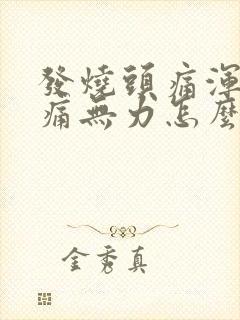 發燒頭痛渾
痛無力怎麼
金秀真